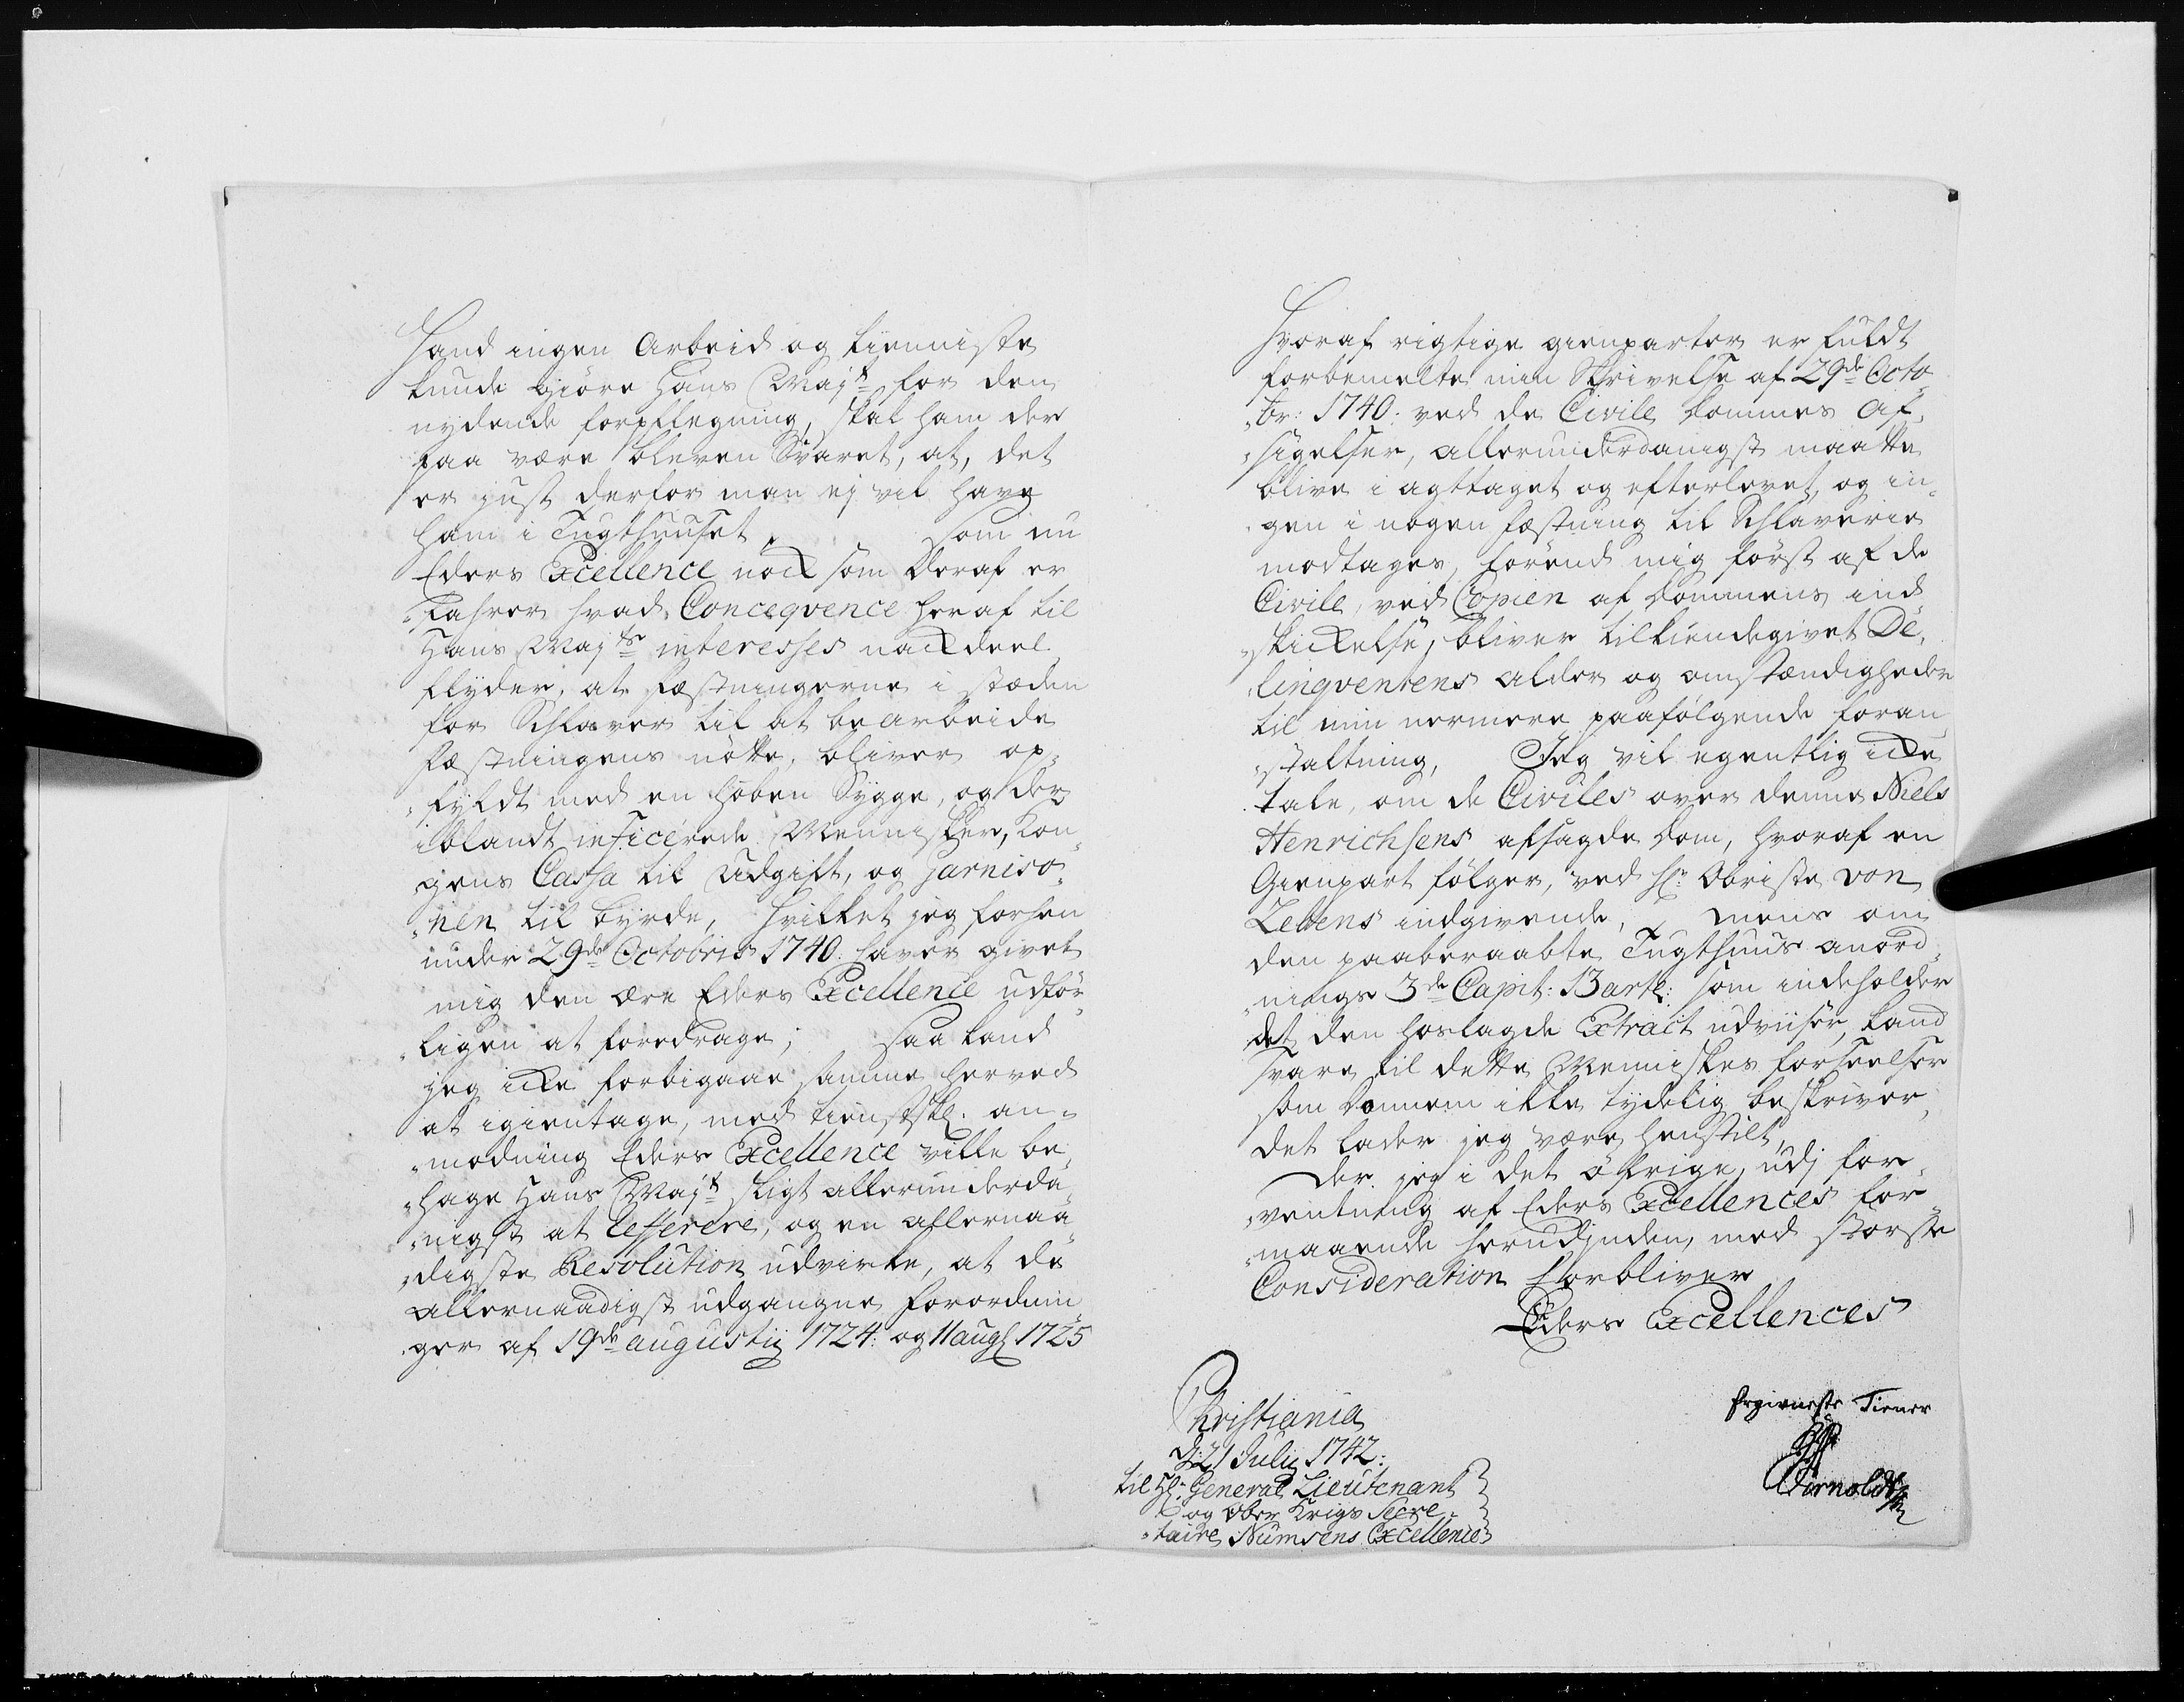 Hand ingen Arbeid og tienniste
kunde giöre Hans Mayt. for den
nydende forpflegning, skal ham der
paa være bleven Svaret, at, det
er just derfor man ej vil have
ham i Tugthuuset, som nu
Eders Excellence nock som deraf er
"fahrer hvad Conceqvence heraf til
Hans Mayts. interesses nackdeel
flyder, at Fæstningerne i stæden
for Schlaver til at bearbeide
Fæstningens nötte, bliver op,
"fyldt med en hoben Sygge, og der
iblandt inficérede Mennisker, Kon,
gens Cassa til Udgift, og Garniso,
"nen til byrde, hvilket jeg forhen
under 29de Octobris 1740. haver givet
mig den ære Eders Excellence udför,
"ligen at foredrage; saa kand
jeg icke forbigaae samme herved
at igientage, med tienstskl. an,
"modning Eders Excellence ville be,
"hage Hans Mayt. sligt allerunderda,
"nigst at refferere, og en allernaa,
"digste Resolution udvirke, at de
allernaadigst udgangne forordnin,
ger af 19de augustij 1724: og 11 aug 1725
Hvoraf rigtige gienparter er fuldt
forbemelte min Skrivelse af 29de Octo,
"br: 1740: ved de Civile dommes Af,
"sigelser, allerunderdanigst maatte
blive i agttaget og efterlevet, og in,
gen i nogen fæstning til Schlaverie
modtages, forend mig först af de
Civile, ved Copien af dommens ind
"skickelse, bliver tilkiendegivet De,
lingventens alder og omstændigheder
til min nermere paafölgende foran,
"staltning, Jeg vil egentlig icke
tale, om de Civiles over denne Niels
Henrichsens afsagde dom, hvoraf en
Gienpart fölger, ved Hr. Obriste von
Zettens indgivende, mens om
den paaberaabte Tugthuus anord,
"nings 3de Capit: 13 artl: som indeholder
det den hoslagde Extract udviiser, kand
svare til dette Menniskes forseelser
som dommen ikke tydelig beskriver,
det lader jeg være henstilt,
Der jeg i det öfrige, udj for,
"ventning af Eders Excellences for,
"maaende herudjnden, med störste
Consideration forbliver
Eders Excellences
Christiania
d: 21 Julij 1742:
ergivneste Tiener
Arnoldt
til Hr. General Lieutenant
og Ober Krigs Secre,
"taire Numsens Excellence